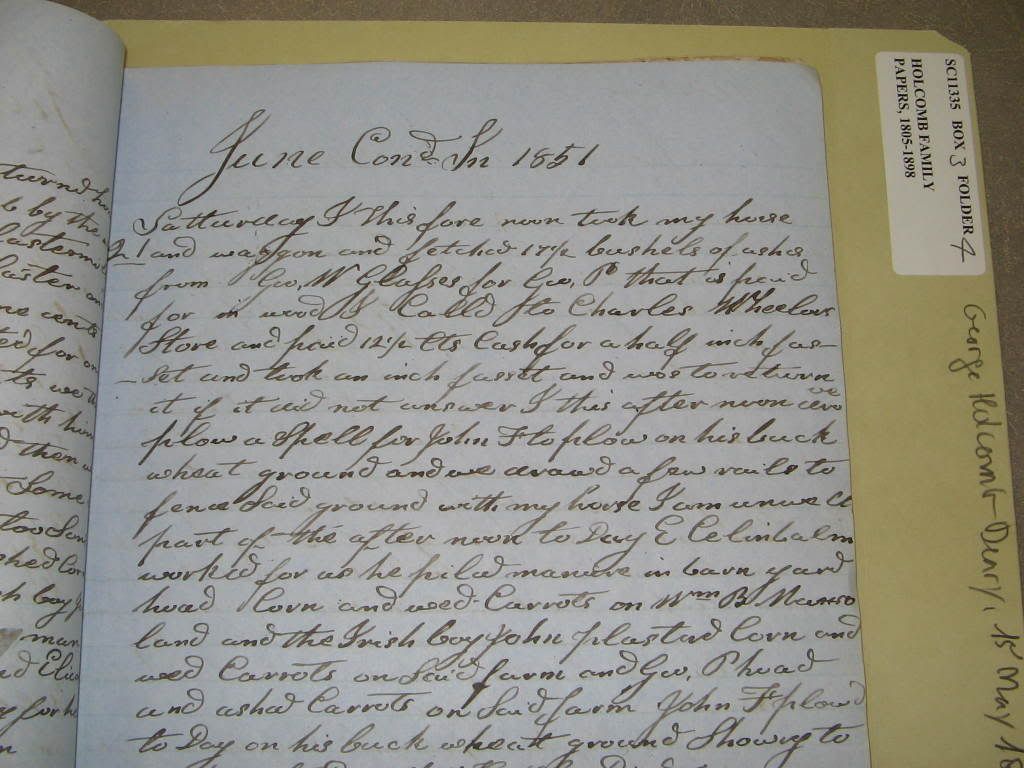 June Cond In 1851
Satturday I this fore noon took my horse
21 and waggon and fetched 17½ bushels of ashes
from Geo, W Glasses for Geo, P that is paid
for in wood I Calld to Charles Wheelers
Store and paid 12½ cts Cash for a half inch fas-
-set and took an inch fasset and was to return
it if it did not answer I this after noon
plow a Spell for John F to plow on his buck
wheat ground and we drawd a few rails to
fence Said ground with my horse I am unwell
part of the after noon to Day E
workd for us he pild manure in barn yard
hoad Corn and wed Carrots on Wm B
land and the Irish boy John plastard Corn and
wed Carrots on Said farm and Geo, P hoad
and ashad Carrots on Said farm John F plowd
to Day on his buck wheat ground Showry to
SC11335 BOX 3 FOLDER 4
HOLCOMB FAMILY
PAPERS, 1805-1898
George Holcomb Diary, 15 May 18